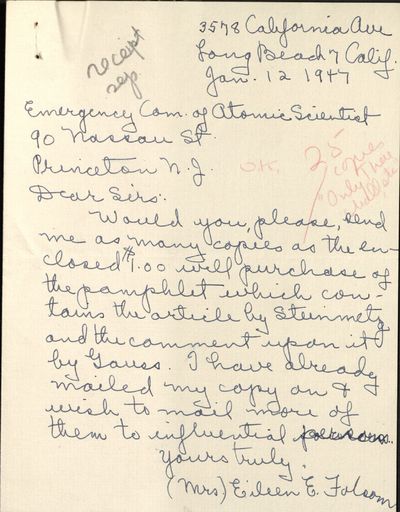 3578 California Ave
Long Beach 7 Calif.
Jan. 12 1947
receipt
sep.
Emergency Com. of Atomic Scientist
90 Nassau St.
Princeton N.J.
O.K.
25
copies
Only
Dear Sirs:
Would you, please, send
me as many copies as the en-
closed $1.00 will purchase of
the pamphlet which con-
tains the article by Steinmetz
and the comment upon it
by Gauss. I have already
mailed my copy on &
wish to mail more of
them to influential persons.
Yours truly,
(Mrs) Eileen E. Folsom